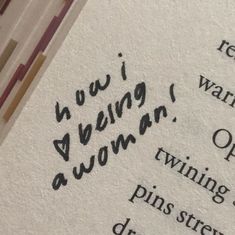 how i
♡ being
a woman!
re
warm
Op
twining
pins strew